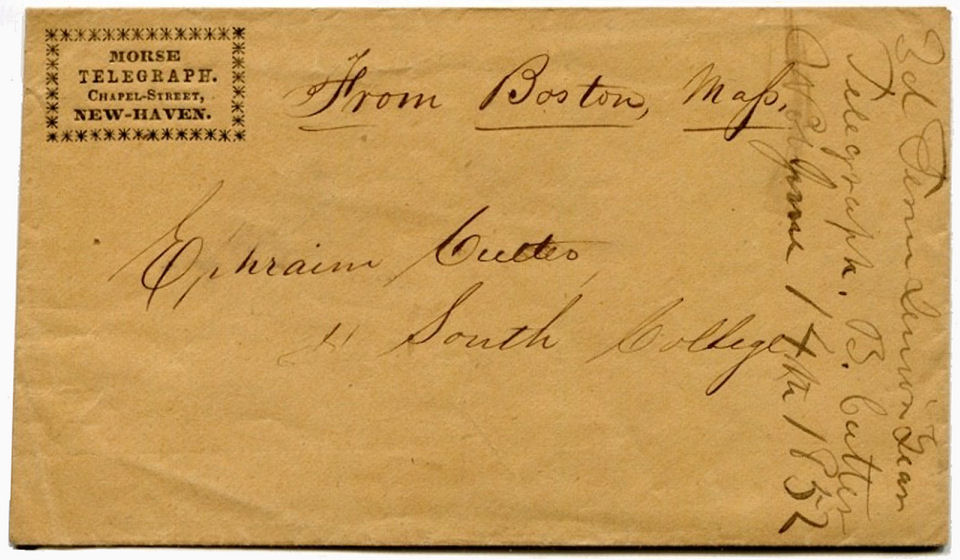 MORSE
TELEGRAPH.
CHAPEL-STREET,
NEW-HAVEN.
From Boston, Mass,
Ephraim Cutter
South College
3d Term Senior Year
Telegraph. B. Cutter
June 14th 1852